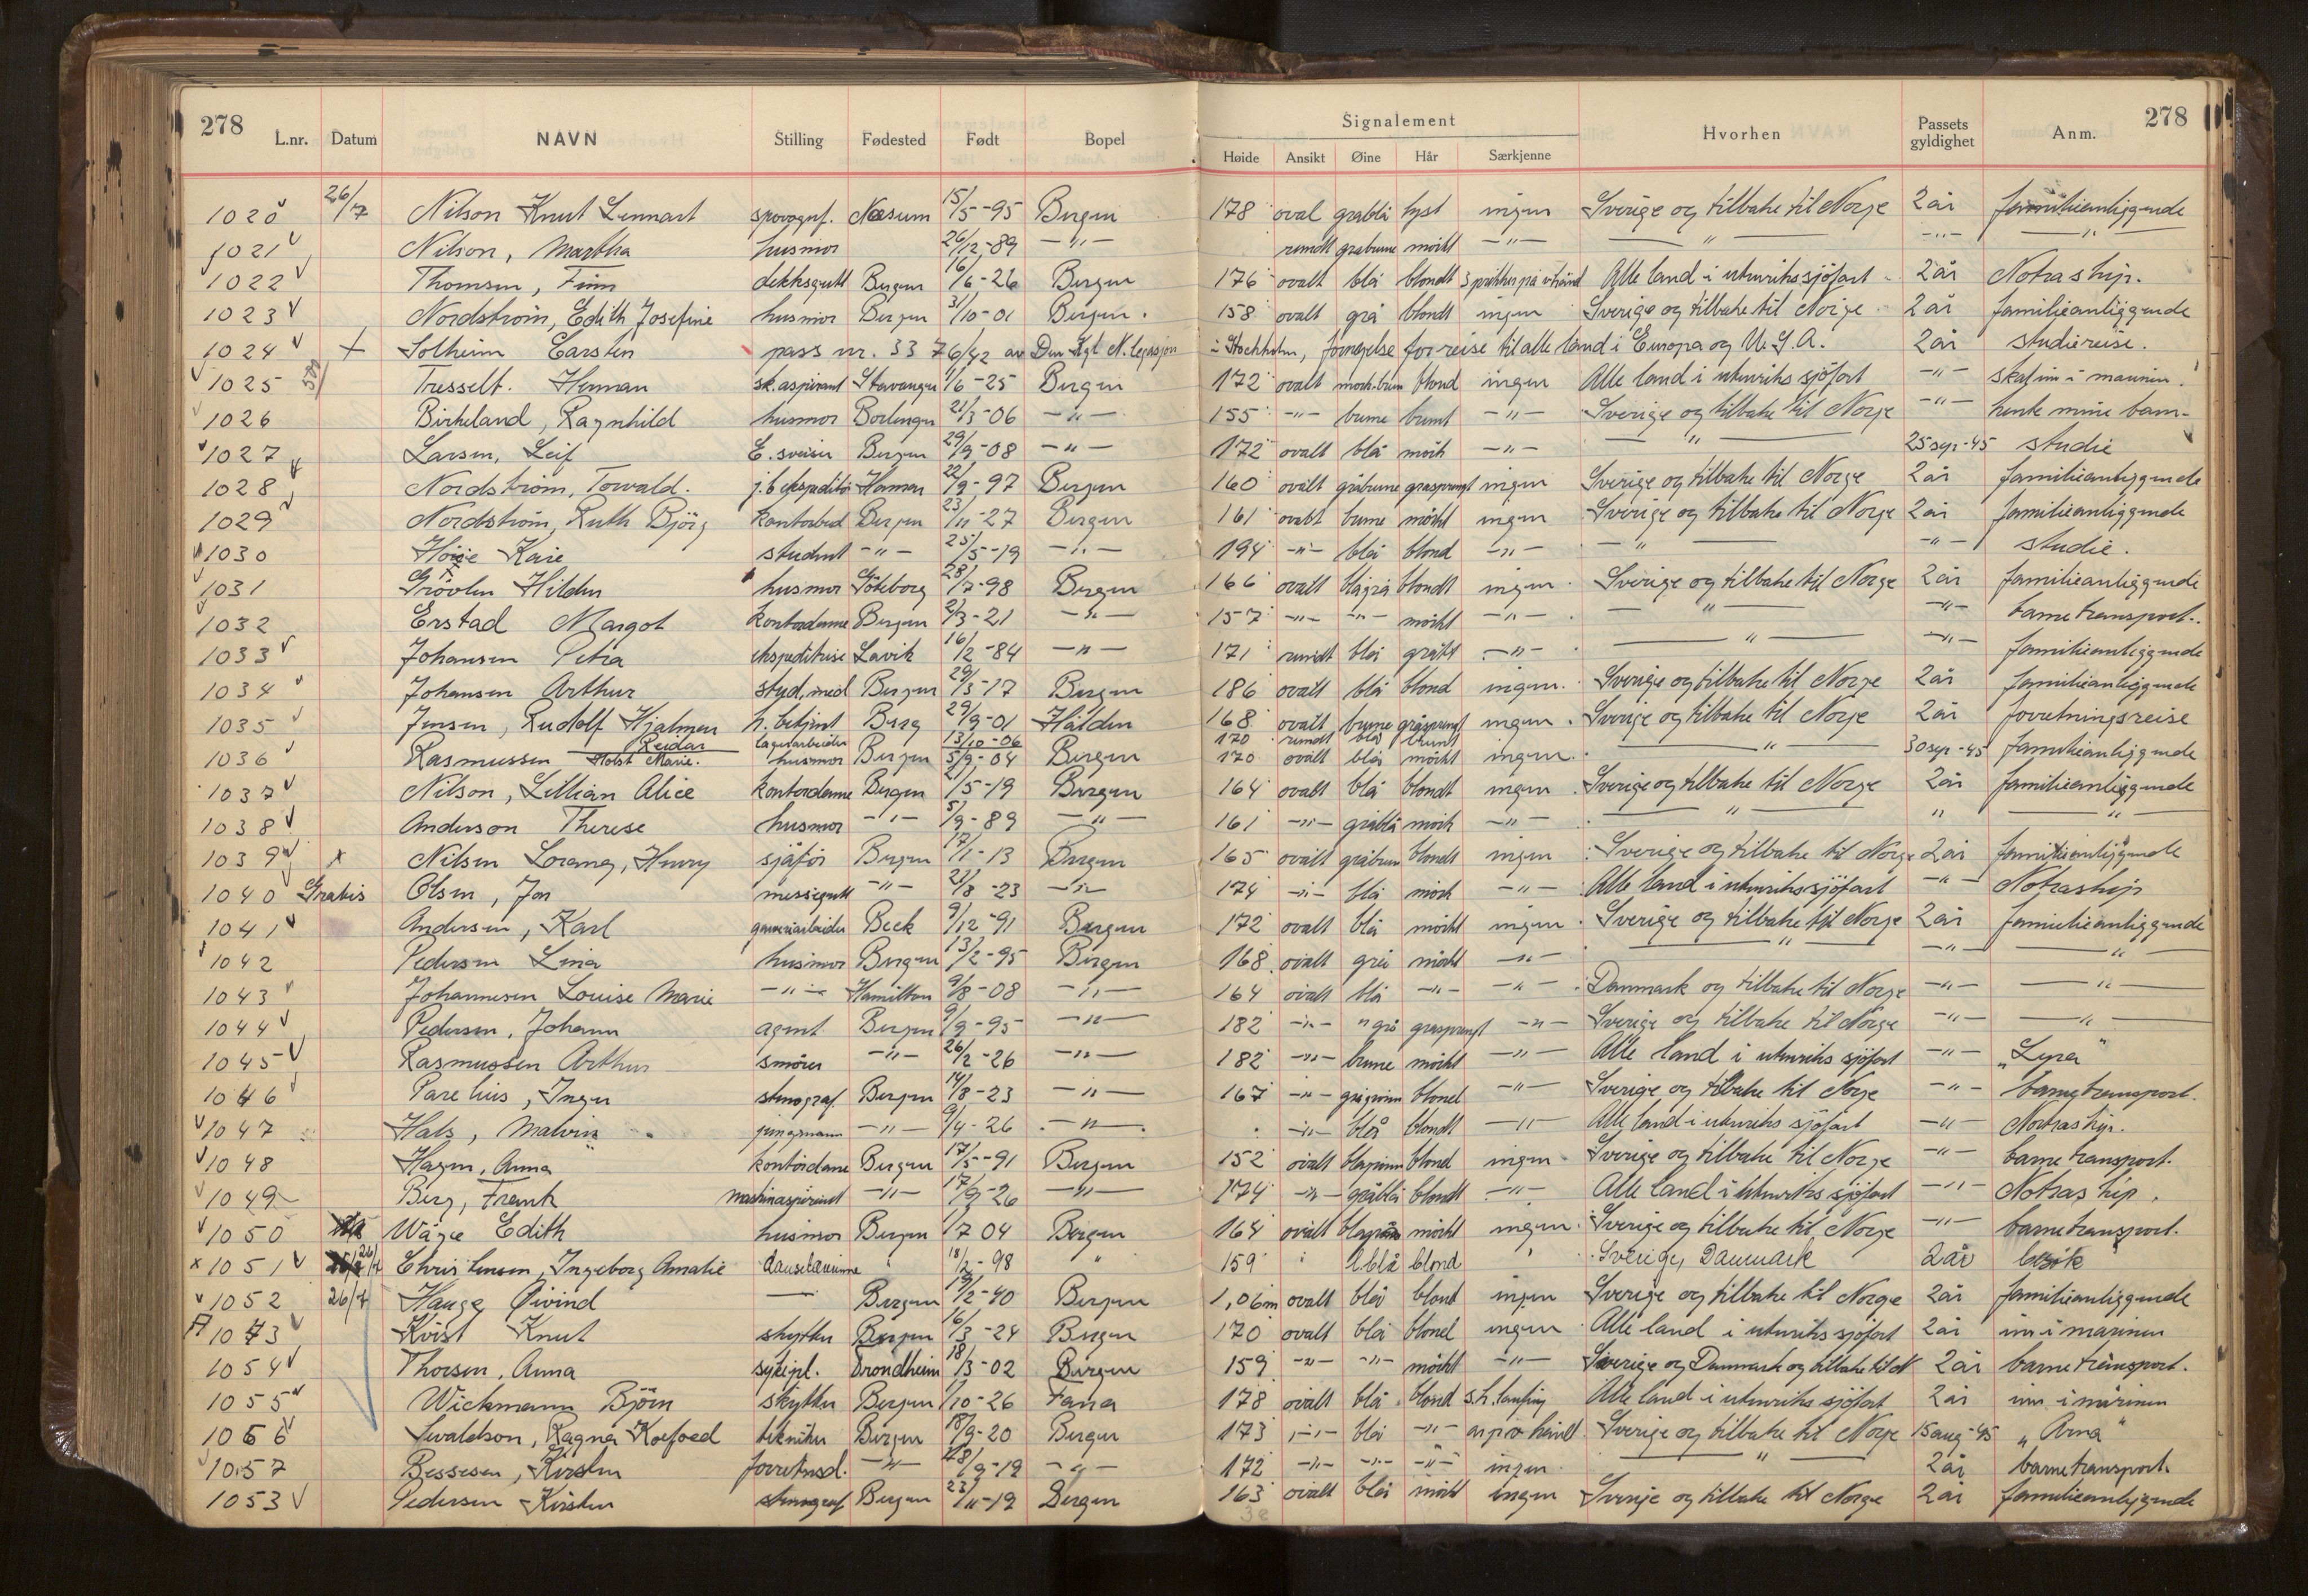 278 278
Signalement
L.nr. Datum NAVN Stilling Fødested Født Bopel Høide Ansikt Øine Hår Særkjenne Hvorhen Passets gyldighet Anm.
1020 26/7 Nilson Knut Lennart Næsum 15/5-95 Bergen 178 oval gråblå lyst ingen Sverige og tilbake til Norge 2 år familieanliggende
1021 Nilson, Martha husmor 26/12-89 -"- rundt gråbrune mørkt -"- -"- -"- -"-
1022 Thomsen, Finn dekksgutt Bergen 16/6-26 Bergen 176 ovalt blå blondt Alle land i utenriks sjöfart 2 år Notraship.
1023 Nordström, Edith Josefine husmor Bergen 3/10-01 Bergen. 158 ovalt grå blondt ingen Sverige og tilbake til Norge 2 år familieanliggende
1024 + Solheim Carsten pass nr. 33 76/42 av Den Kgl N. legasjon i Stockholm, fornyelse for reise til alle land i Europa og U.S.A. 2 år studiereise.
1025 Tresselt. Herman sk.aspirant Stavanger 1/6-25 Bergen 172 ovalt mørk.brun blond ingen Alle land i utenriks sjöfart -"- skal inn i marinen.
1026 Birkeland, Ragnhild husmor 21/3-06 -"- 155 -"- brune brunt -"- Sverige og tilbake til Norge -"- hente mine barn-
1027 Larsen, Leif E. sveiser Bergen 29/9-08 -"- 172 ovalt blå mörk -"- -"- 25 sep-45 studie
1028 Nordström, Torvald. 22/9-97 Bergen 160 ovalt gråbrune gråsprengt ingen Sverige og tilbake til Norge 2 år familieanliggende
1029 Nordström, Ruth Björg kontorbud Bergen 23/11-27 Bergen 161 ovalt brune mörkt ingen Sverige og tilbake til Norge 2 år familieanliggende
1030 Kåre student -"- 25/5-19 -"- 194 -"- blå blond -"- -"- -"- studie.
1031 Hildur husmor Göteborg 28/7-98 Bergen 166 ovalt blågrå blondt ingen Sverige og tilbake til Norge 2 år familieanliggende
1032 Erstad Margot kontordame Bergen 2/3-21 -"- 157 -"- -"- mörkt -"- -"- -"- barnetransport.
1033 Johansen Petra ekspeditrise Lavik 16/2-84 -"- 171 rundt blå grått -"- -"- -"- familieanliggende
1034 Johansen Arthur stud. med Bergen 29/3-17 Bergen 186 ovalt blå blond ingen. Sverige og tilbake til Norge 2 år familieanliggende
1035 Jensen, Rudolf Hjalmar h. betjent Berg 29/9-01 Halden 168 ovalt brune gråsprengt ingen. Sverige og tilbake til Norge 2 år forretningsreise
Reidar lagerarbeider 13/10-06 170 rundt blå brunt
1036 Rasmussen Holst Marie. husmor Bergen 5/9-04 Bergen 170 ovalt blå mörkt ingen. -"- 30 sep-45 familieanliggende
1037 Nilson, Lillian Alice kontordame Bergen 21/5-19 Bergen 164 ovalt blå blondt ingen Sverige og tilbake til Norge 2 år familieanliggende
1038 Anderson Therese husmor -"- 5/9-89 -"- 161 -"- gråblå mörk -"- -"- " -"-
1039 x Nilsen Lorang, Henry sjåför Bergen 17/1-13 Bergen 165 ovalt gråbrun blondt ingen Sverige og tilbake til Norge 2 år familieanliggende
1040 Gratis Olsen, Jon messegutt -"- 21/8-23 -"- 174 -"- blå mörk -"- Alle land i utenriks sjöfart -"- Notraship
1041 Andersen, Karl Beck 9/12-91 Bergen 172 ovalt blå mörkt ingen. Sverige og tilbake til Norge 2 år familieanliggende
1042 Pedersen Lina husmor Bergen 13/2-95 Bergen 168 ovalt grå mörkt -"- -"- -"- -"-
1043 Johannesen Louise Marie -"- Hamilton 9/8-08 -"- 164 ovalt blå -"- -"- Danmark og tilbake til Norge -"- -"-
1044 Pedersen, Johann agent Bergen 9/9-95 -"- 182 -"- "grå gråsprengt -"- Sverige og tilbake til Norge -"- -"-
1045 Rasmussen Arthur smörer -"- 26/2-26 -"- 182 -"- brune mörkt -"- Alle land i utenriks sjöfart -"- "Lyra"
1046 Parelius, Inger stenograf. Bergen 14/8-23 -"- 167 -"- grågrönn blond -"- Sverige og tilbake til Norge -"- barnetransport.
1047 Hals, Malvin jungmann -"- 9/4-26 -"- -"- blå blondt -"- Alle land i utenriks sjöfart -"- Notraship.
1048 Hagen, Anna kontordame Bergen 17/5-91 Bergen 152 ovalt blågrönn blond ingen Sverige og tilbake til Norge -"- barnetransport.
1049 Berg, Frank maskinaspirant -"- 17/9-26 -"- 174 -"- gråblå blondt -"- Alle land i utenriks sjöfart -"- Notraship.
1050 Wåge Edith husmor Bergen 1/7 04 Bergen 164 ovalt blågrønn mörkt ingen. Sverige og tilbake til Norge -"- barnetransport.
x 1051 26/7 Christensen, Ingeborg Amalie danselærinne " 18/2-98 " 159 " blblå blond " Sverige, Danmark 2 år besök
1052 26/7 Hauge Øivind — Bergen 19/2-40 Bergen 1,06m ovalt blå blond ingen Sverige og tilbake til Norge 2 år familieanliggende
1073 Kvist Knut skytter Bergen 16/3-24 Bergen 170 ovalt blå blond ingen Alle land i utenriks sjöfart 2 år inn i marinen
1054 Thorsen, Anna sykepl. Trondheim 18/3-02 Bergen 159 -"- -"- mörkt -"- Sverige og Danmark og tilbake til N 2 år barnetransport.
1055 Wickmann Björn skytter Bergen 1/10-26 Fana 178 ovalt blå blond Alle land i utenriks sjöfart 2 år inn i marinen
1056 Sivaldson, Ragnar Koefoed tekniker Bergen 18/9-20 Bergen 173 -"- blå -"- Sverige og tilbake til Norge 15 aug-45 "Arna"
1057 Bessesen, Kirsten -"- 28/9-19 -"- 172 -"- -"- -"- ingen -"- 2 år barnetransport.
1053 Pedersen Kirsten stenograf Bergen 23/11-19 Bergen 163 ovalt blå mörkt ingen Sverige og tilbake til Norge 2 år familieanliggende